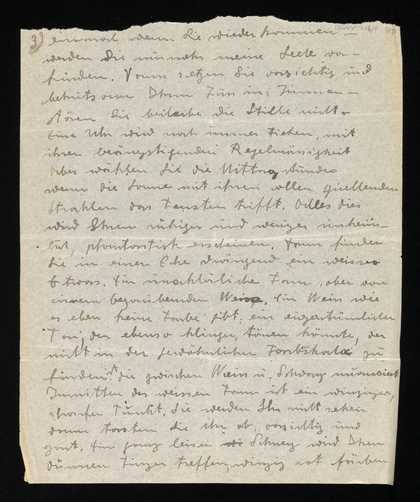 3) einmal wenn Sie wieder kommen
werden Sie meine Seele vor-
finden. Dann setzen Sie vorsichtig und
behutsam Ihren Fuss ins Zimmer
Stören Sie beileibe die Stille nicht
Eine Uhr wird noch immer ticken, mit
ihren beängstigenden Regelmässigkeit
Aber wählen Sie die Mittagsstunde
wenn die Sonne mit ihren vollen quellenden
Strahlen das Fenster trifft. Alles dies
wird Ihnen ruhiger und weniger unheim-
lich, phantastisch erscheinen. Dann finden
Sie in einer Ecke ein weisses
Etwas. Ein Farbe, aber von
einem Weiss, Ein Weiss wie
es eben keine Farbe gibt, ein eigentümlicher
Ton, der ebenso klingen, tönen könnte, der
nicht in der gewöhnlichen Farbskala zu
finden, die zwischen Weiss u. Schwarz
Inmitten des weissen ist ein winziger,
scharfer Punkt, Sie werden Ihn nicht sehen
dann tasten Sie ihn ab, vorsichtig und
zart. Ein ganz leiser Schmerz wird Ihren
dünnen Finger treffen, winzig